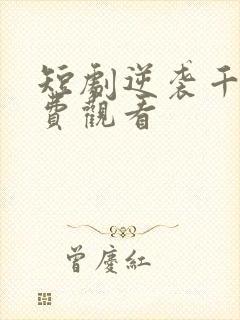 短劇逆袭千
費觀看
曾慶紅